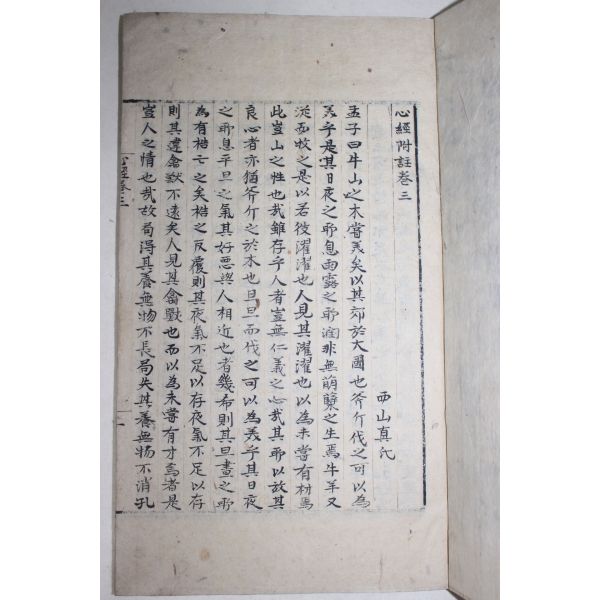 心經附註卷三
西山真氏
孟子曰牛山之木嘗美矣以其郊於大國也斧斤伐之可以為
美乎是其日夜之所息雨露之所潤非無萌蘖之生焉牛羊又
從而牧之是以若彼濯濯也人見其濯濯也以為未嘗有材焉
此豈山之性也哉雖存乎人者豈無仁義之心哉其所以放其
良心者亦猶斧斤之於木也旦旦而伐之可以為美乎其日夜
之所息平旦之氣其好惡與人相近也者幾希則其旦晝之所
為有梏亡之矣梏之反覆則其夜氣不足以存夜氣不足以存
則其違禽獸不遠矣人見其禽獸也而以為未嘗有才焉者是
豈人之情也哉故苟得其養無物不長苟失其養無物不消孔
心經卷三